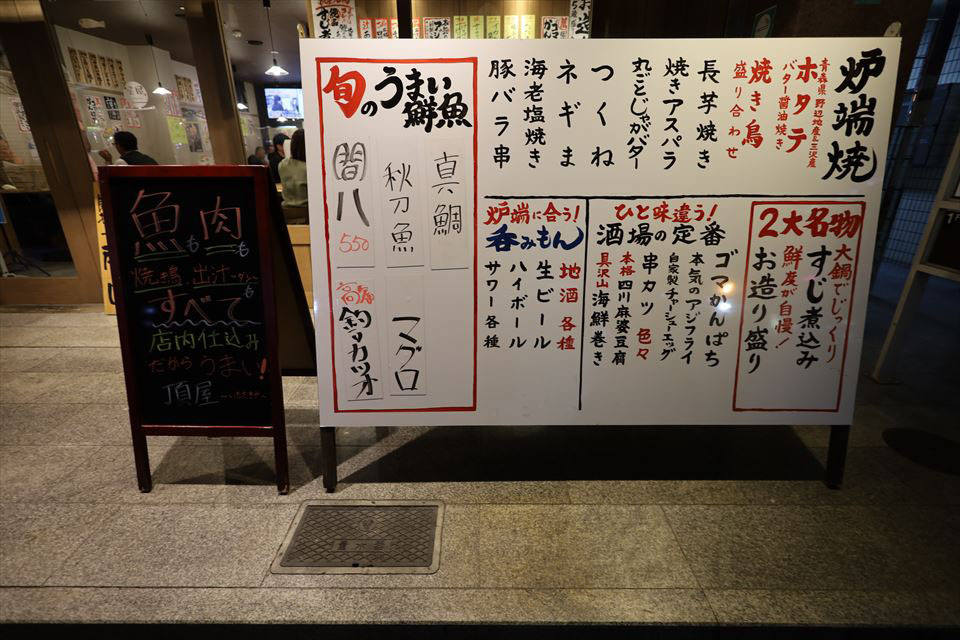 炉端焼
青森県野辺地産&三沢産
ホタテ
バター醤油焼き
焼き鳥
盛り合わせ
長芋焼き
焼きアスパラ
丸ごとじゃがバター
つくね
ネギま
海老塩焼き
豚バラ串
旬のうまい鮮魚
真鯛
秋刀魚
間八
550
マグロ
釣りカツオ
2大名物
大鍋でじっくり
すじ煮込み
鮮度が自慢!
お造り盛り
ひと味違う!
酒場の定番
ゴマかんぱち
本気のアジフライ
自家製チャーシューエッグ
串カツ 色々
本格四川麻婆豆腐
具沢山海鮮巻き
炉端に合う!
呑みもん
地酒各種
生ビール
ハイボール
サワー各種
魚も肉も
焼き鳥、出汁
すべても
店内仕込み
だからうまい!
頂屋